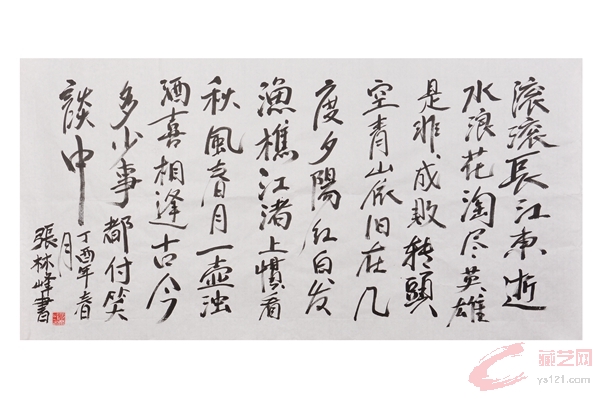 滚滚長江東逝
水浪花淘尽英雄
是非成败转頭
空青山依旧在几
度夕陽红白发
渔樵江渚上惯看
秋風春月一壶浊
酒喜相逢古今
多少事都付笑
談中
丁酉年春月
張林峰書
藏艺网
ys121.com